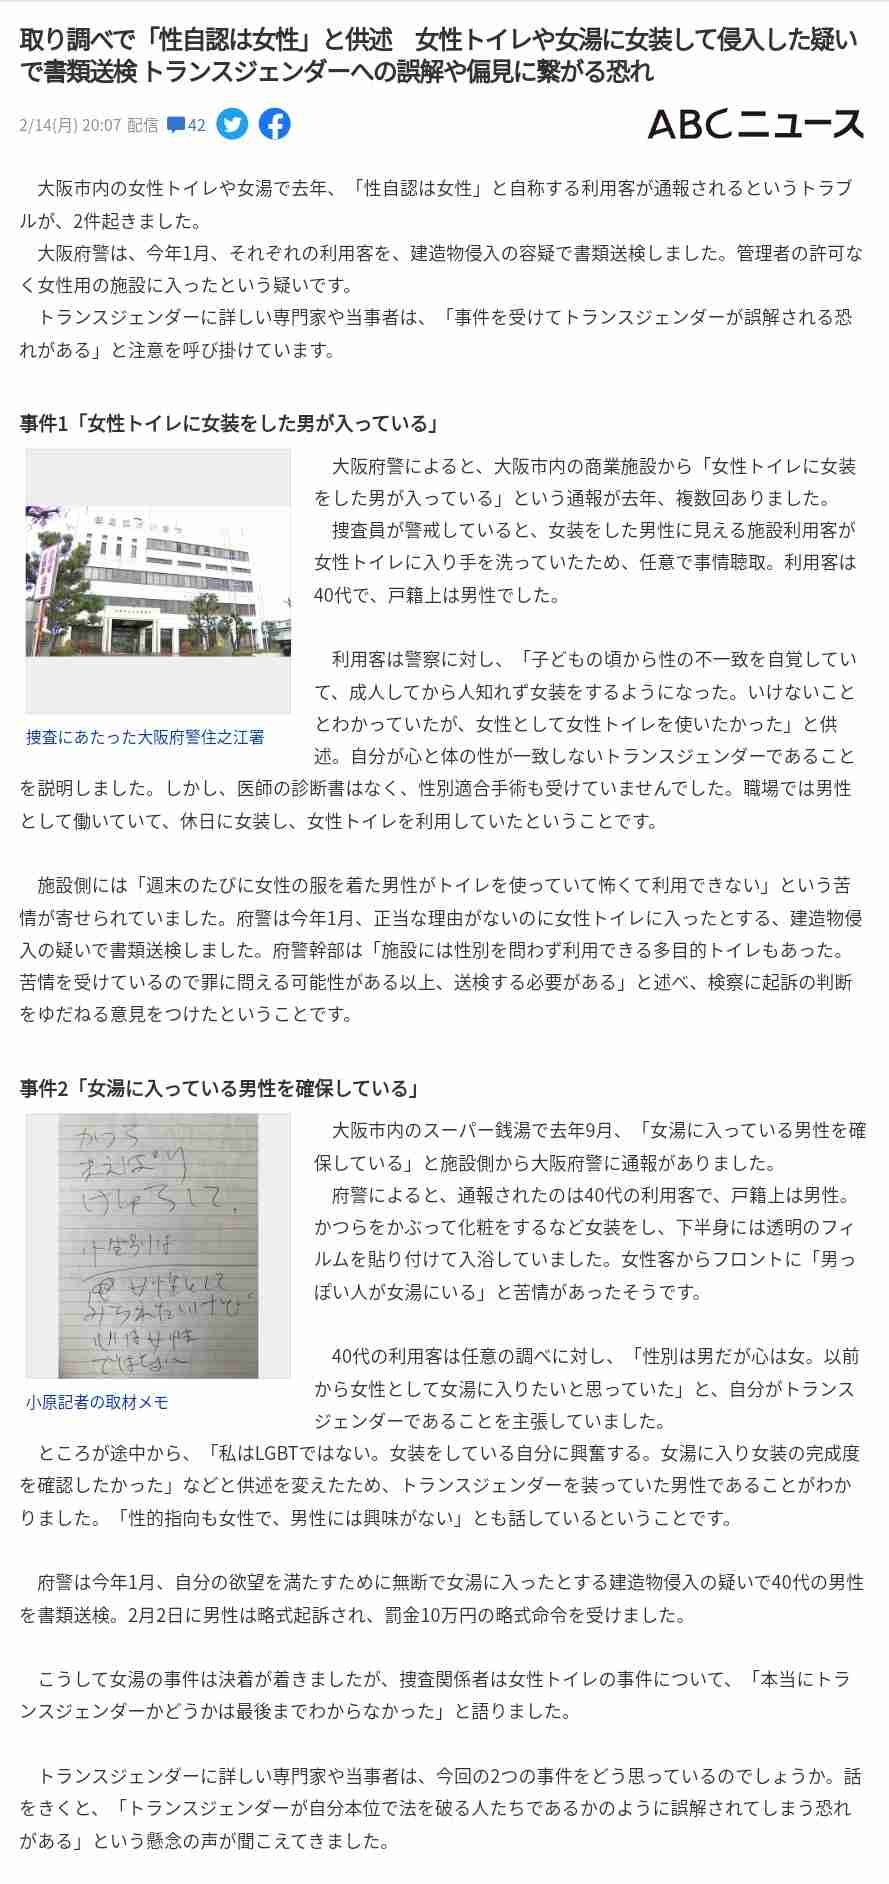 取り調べで「性自認は女性」と供述　女性トイレや女湯に女装して侵入した疑い
で書類送検 トランスジェンダーへの誤解や偏見に繋がる恐れ
2/14(月) 20:07 配信 42
ABCニュース
大阪市内の女性トイレや女湯で去年、「性自認は女性」と自称する利用客が通報されるというトラブ
ルが、2件起きました。
大阪府警は、今年1月、それぞれの利用客を、建造物侵入の容疑で書類送検しました。管理者の許可な
く女性用の施設に入ったという疑いです。
トランスジェンダーに詳しい専門家や当事者は、「事件を受けてトランスジェンダーが誤解される恐
れがある」と注意を呼び掛けています。
事件1「女性トイレに女装をした男が入っている」
大阪府警によると、大阪市内の商業施設から「女性トイレに女装
をした男が入っている」という通報が去年、複数回ありました。
捜査員が警戒していると、女装をした男性に見える施設利用客が
女性トイレに入り手を洗っていたため、任意で事情聴取。利用客は
40代で、戸籍上は男性でした。
利用客は警察に対し、「子どもの頃から性の不一致を自覚してい
て、成人してから人知れず女装をするようになった。いけないこと
とわかっていたが、女性として女性トイレを使いたかった」と供
述。自分が心と体の性が一致しないトランスジェンダーであること
捜査にあたった大阪府警住之江署
を説明しました。しかし、医師の診断書はなく、性別適合手術も受けていませんでした。職場では男性
として働いていて、休日に女装し、女性トイレを利用していたということです。
施設側には「週末のたびに女性の服を着た男性がトイレを使っていて怖くて利用できない」という苦
情が寄せられていました。府警は今年1月、正当な理由がないのに女性トイレに入ったとする、建造物侵
入の疑いで書類送検しました。府警幹部は「施設には性別を問わず利用できる多目的トイレもあった。
苦情を受けているので罪に問える可能性がある以上、送検する必要がある」と述べ、検察に起訴の判断
をゆだねる意見をつけたということです。
事件2「女湯に入っている男性を確保している」
かつら
まえばり
けしょうして、
小原記者の取材メモ
大阪市内のスーパー銭湯で去年9月、「女湯に入っている男性を確
保している」と施設側から大阪府警に通報がありました。
府警によると、通報されたのは40代の利用客で、戸籍上は男性。
かつらをかぶって化粧をするなど女装をし、下半身には透明のフィ
ルムを貼り付けて入浴していました。女性客からフロントに「男っ
ぽい人が女湯にいる」と苦情があったそうです。
40代の利用客は任意の調べに対し、「性別は男だが心は女。以前
から女性として女湯に入りたいと思っていた」と、自分がトランス
ジェンダーであることを主張していました。
ところが途中から、「私はLGBTではない。女装をしている自分に興奮する。女湯に入り女装の完成度
を確認したかった」などと供述を変えたため、トランスジェンダーを装っていた男性であることがわか
りました。「性的指向も女性で、男性には興味がない」とも話しているということです。
府警は今年1月、自分の欲望を満たすために無断で女湯に入ったとする建造物侵入の疑いで40代の男性
を書類送検。2月2日に男性は略式起訴され、罰金10万円の略式命令を受けました。
こうして女湯の事件は決着が着きましたが、捜査関係者は女性トイレの事件について、「本当にトラ
ンスジェンダーかどうかは最後までわからなかった」と語りました。
トランスジェンダーに詳しい専門家や当事者は、今回の2つの事件をどう思っているのでしょうか。話
をきくと、「トランスジェンダーが自分本位で法を破る人たちであるかのように誤解されてしまう恐れ
がある」という懸念の声が聞こえてきました。